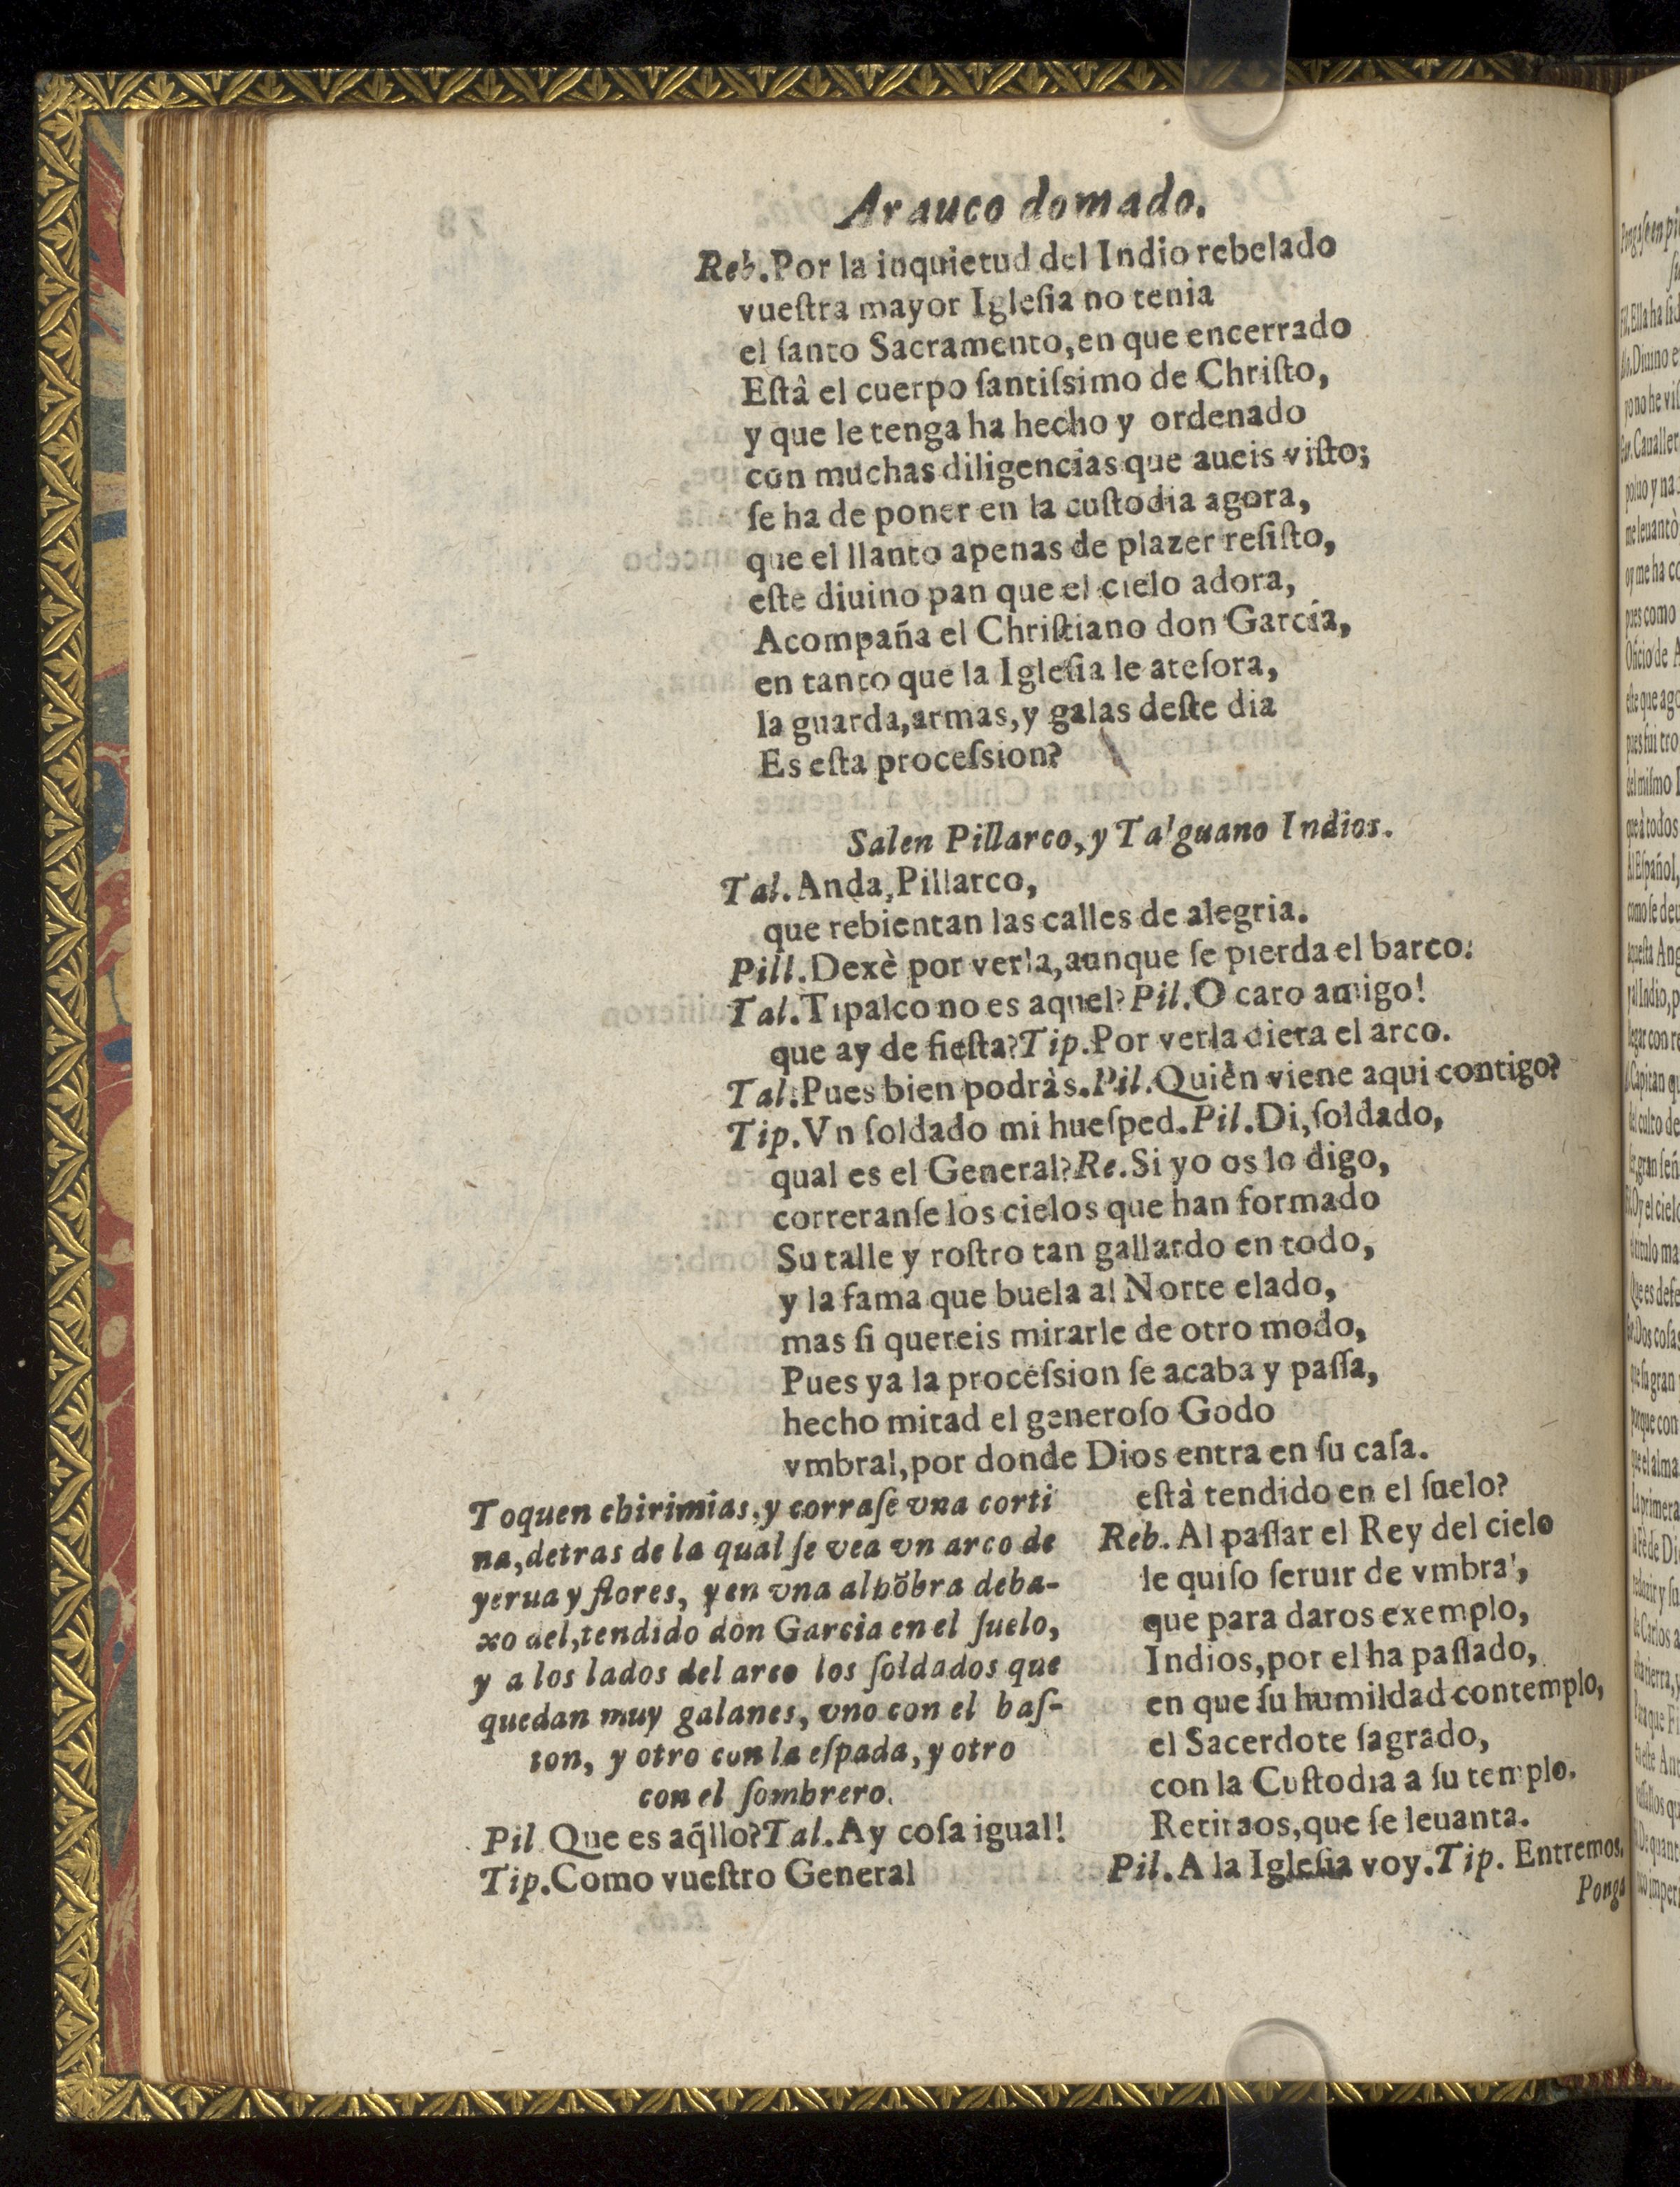 Arauco domado.
Reb. Por la inquietud del Indio rebelado
vueſtra mayor Igleſia no tenia
el ſanto Sacramento, en que encerrado
Eſtâ el cuerpo ſantiſsimo de Chriſto,
y que le tenga ha hecho y ordenado
con muchas diligencias que aueis viſto;
ſe ha de poner en la cuſtodia agora,
que el llanto apenas de plazer reſiſto,
eſte diuino pan que el cielo adora,
Acompaña el Chriſtiano don Garcia,
en tanto que la Igleſia le ateſora,
la guarda, armas, y galas deſte dia
Es eſta proceſsion?
Salen Pillarco, y Talguano Indios.
Tal. Anda, Pillarco,
que rebientan las calles de alegria.
Pill. Dexè por verla, aunque ſe pierda el barco.
Tal. Tipalco no es aquel? Pil. O caro amigo!
que ay de fieſta? Tip. Por verla diera el arco.
Tal. Pues bien podràs. Pil. Quièn viene aqui contigo?
Tip. Vn ſoldado mi hueſped. Pil. Di, ſoldado,
qual es el General? Re. Si yo os lo digo,
correranſe los cielos que han formado
Su talle y roſtro tan gallardo en todo,
y la fama que buela al Norte elado,
mas ſi quereis mirarle de otro modo,
Pues ya la proceſsion ſe acaba y paſſa,
hecho mitad el generoſo Godo
vmbral, por donde Dios entra en ſu caſa.
Toquen chirimias, y corraſe vna corti
na, detras de la qual ſe vea vn arco de
yerua y flores, y en vna alhõbra deba-
xo del, tendido don Garcia en el ſuelo,
y a los lados del arco los ſoldados que
quedan muy galanes, vno con el baſ-
ton, y otro con la eſpada, y otro
con el ſombrero.
Pil Que es aq̃llo? Tal. Ay coſa igual!
Tip. Como vueſtro General
eſtà tendido en el ſuelo?
Reb. Al paſſar el Rey del cielo
le quiſo ſeruir de vmbral,
que para daros exemplo,
Indios, por el ha paſſado,
en que ſu humildad contemplo,
el Sacerdote ſagrado,
con la Cuſtodia a ſu templo.
Retiraos, que ſe leuanta.
Pil. A la Igleſia voy. Tip. Entremos.
Ponga